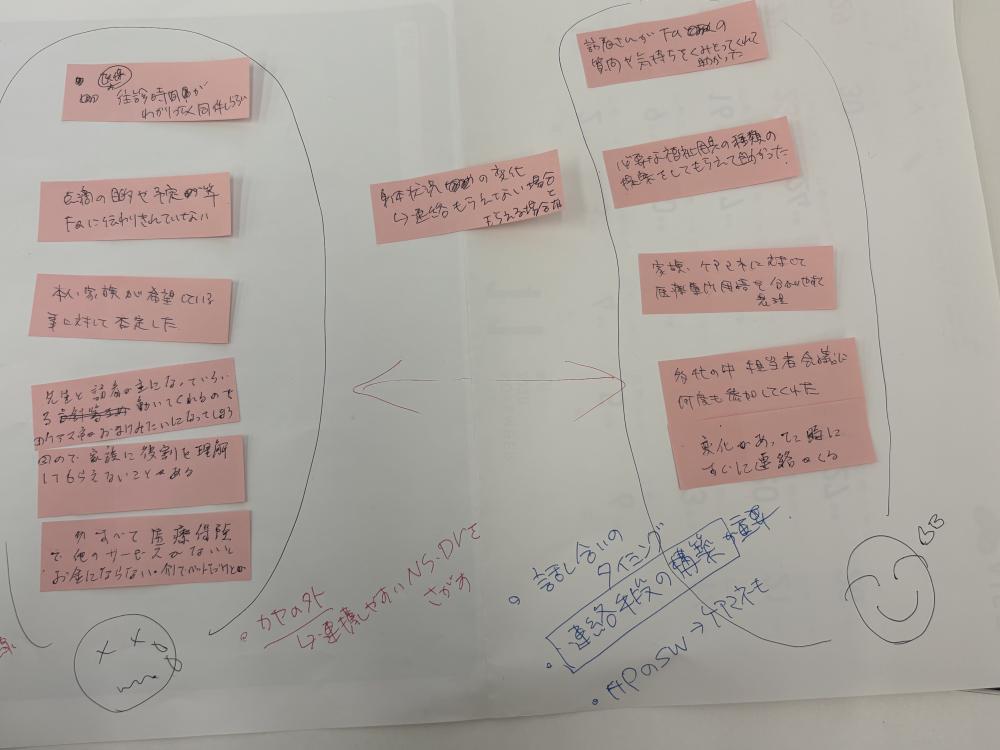 往診時間が
わかりづらく同伴しづらい
点滴の目的や予定等
Faに伝わりきれていない
本人、家族が希望している
事に対して否定した
先生と訪看が主になっていろい
ろ動いてくれるので
ケアマネがおまけみたいになってしまう
ので家族に役割を理解
してもらえないことがある
すべて医療保険
で他のサービスがないと
お金にならない。
身体状況の変化
↳連絡もらえてない場合と
もらえる場合
訪看さんがFaの
質問や気持ちをくみとってくれて
助かった
必要な福祉用具の種類の
提案をしてもらえて助かった。
家族、ケアマネに対して
医療単的用語を分かりやすく
多忙の中担当者会議に
何度も参加してくれた
変化があった時に
すぐに連絡がくる
・カヤの外
↳連携しやすいNS・Drを
さがす
・話し合いの
タイミング
・連絡手段の構築が重要.
・HPのSW→ケアマネも